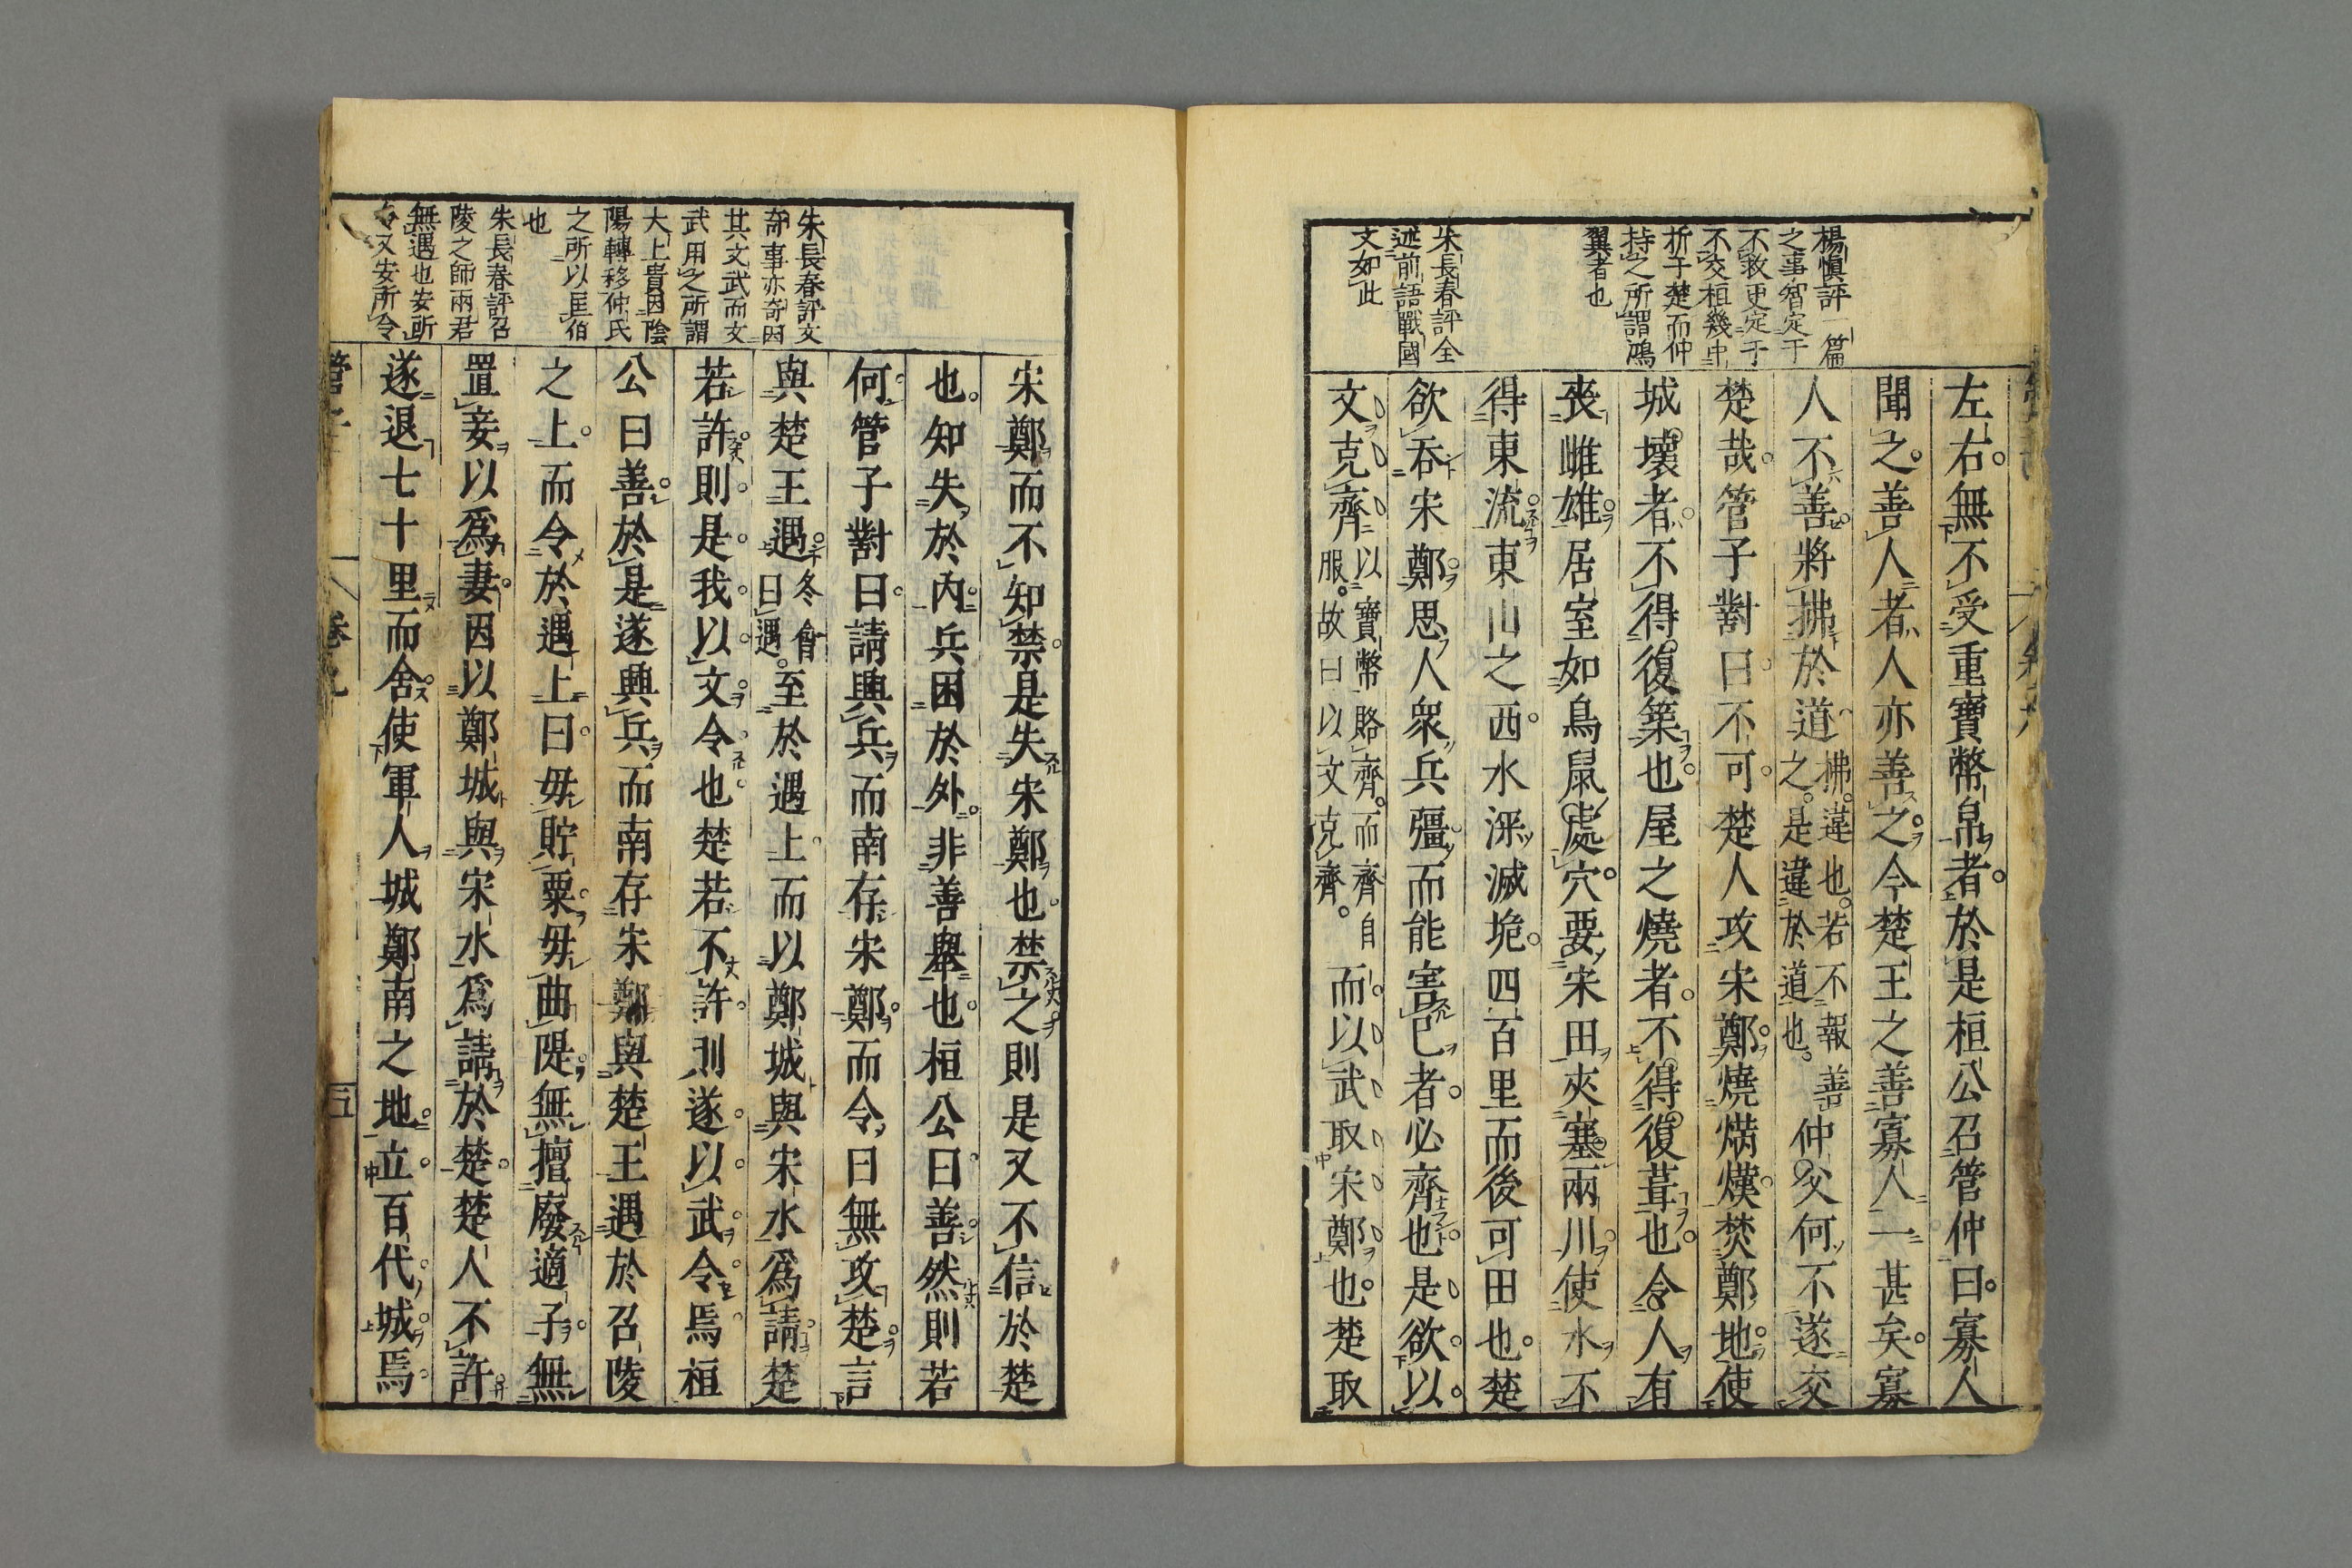 楊慎評一篇
之事智定于
不救更定于
不交桓幾中
析于楚而仲
持之所謂鴻
翼者也
朱長春評全
述前語戰國
文如此
左右無不受重寶幣帛者於是桓公召管仲曰寡人
聞之善人者人亦善之今楚王之善寡人一甚矣寡
人不善將拂於道拂違也若不報善
之是違於道也仲父何不遂交
楚哉管子對曰不可楚人攻宋鄭燒焫熯焚鄭地使
城壞者不得復築也屋之燒者不得復葺也令人有
喪雌雄居室如鳥鼠處穴要宋田夾塞兩川使水不
得東流東山之西水深滅垝四百里而後可田也楚
欲吞宋鄭思人衆兵彊而能害己者必齊也是欲以
文克齊以寶幣賂齊而齊自
服故曰以文克齊而以武取宋鄭也楚取
朱長春評文
奇事亦奇因
其文武而文
武用之所謂
大上貴因陰
陽轉移仲氏
之所以匡伯
也
朱長春評召
陵之師兩君
無遇也安所
令又安所令
宋鄭而不知禁是失宋鄭也禁之則是又不信於楚
也知失於内兵困於外非善舉也桓公曰善然則若
何管子對曰請興兵而南存宋鄭而令曰無攻楚言
與楚王遇冬會
曰遇至於遇上而以鄭城與宋水爲請楚
若許則是我以文令也楚若不許則遂以武令焉桓
公曰善於是遂興兵而南存宋鄭與楚王遇於召陵
之上而令於遇上曰毋貯粟毋曲隄無擅廢適子無
置妾以爲妻因以鄭城與宋水爲請於楚楚人不許
遂退七十里而舍使軍人城鄭南之地立百代城焉
管子
卷九
五